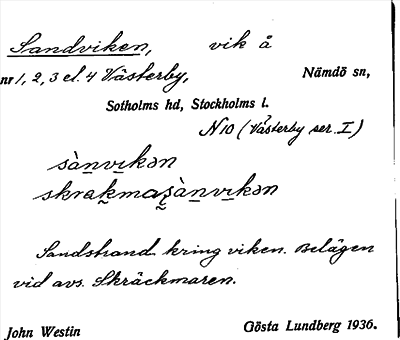 Sandviken, vik å
nr 1, 2, 3 el. 4 Västerby, Nämdö sn,
Sotholms hd, Stockholms l.
N10 (Västerby ser. I)
sànvıkən
skrak̬mas̬ànvıkən
Sandstrand kring viken. Belägen
vid avs. Skräckmaren.
John Westin Gösta Lundberg 1936.